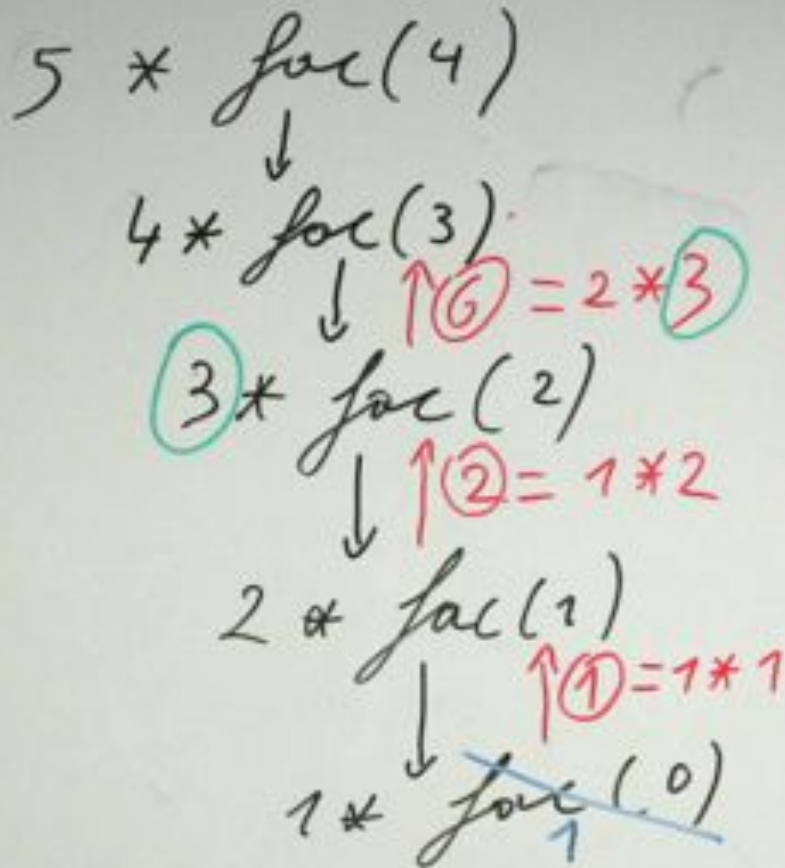 5 * fac(4)
↓
4 * fac(3)
↓ ↑ 6 = 2 * 3
3 * fac(2)
↓ ↑ 2 = 1 * 2
2 * fac(1)
↓ ↑ 1 = 1 * 1
1 * fac(0)
1